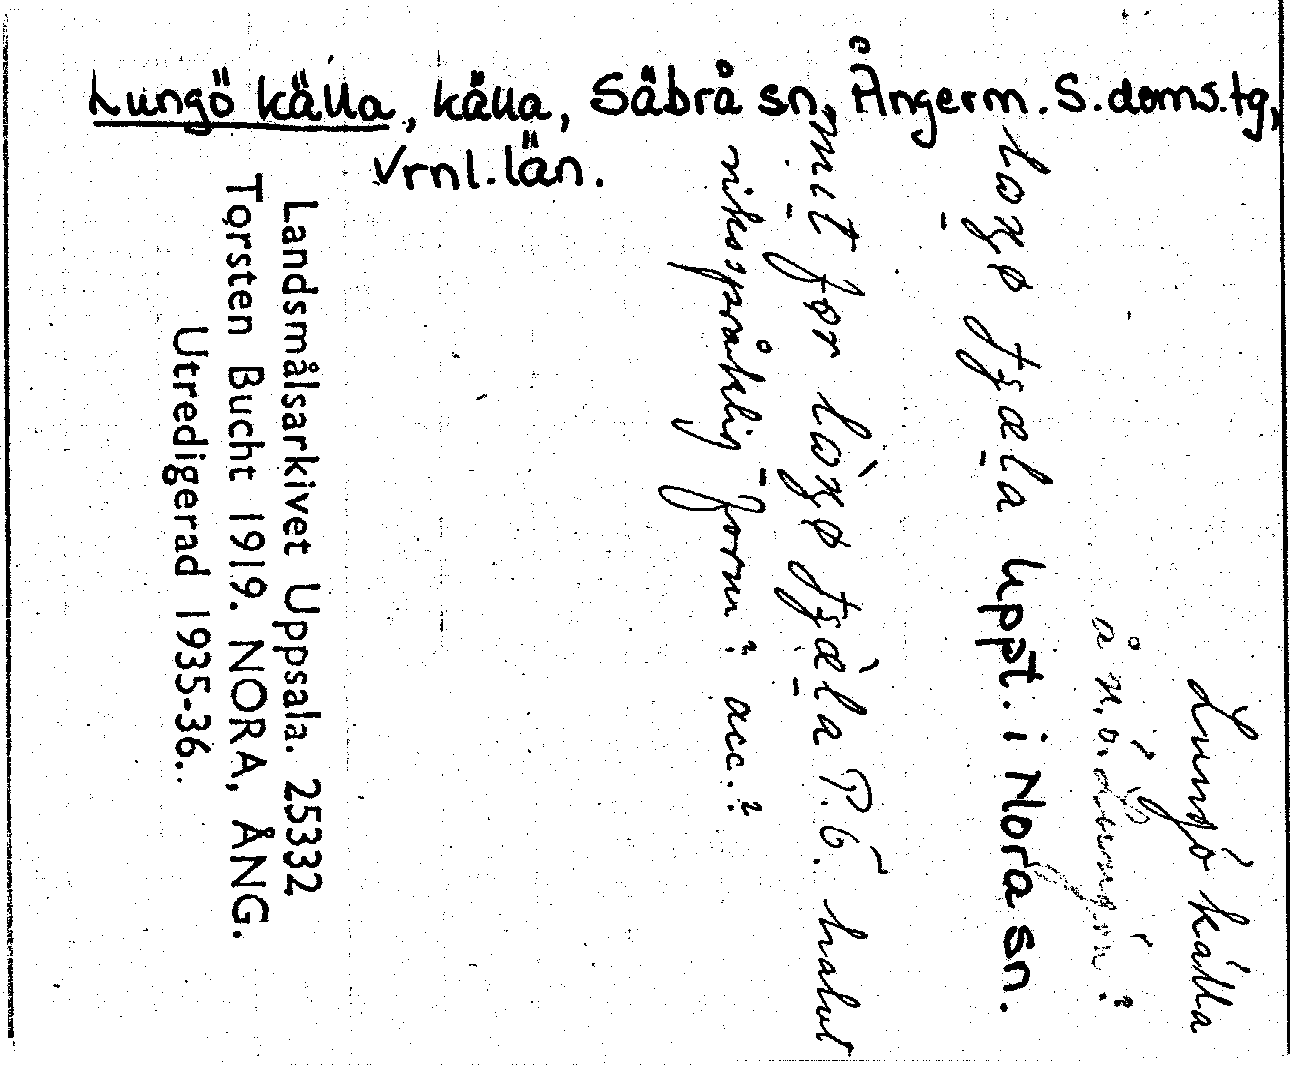 Lungö källa, källa, Säbrå sn, Ångerm. S. doms.tg,
Vrnl. län.
Lungö källa
å n. ö. Lungön?
Uppt. i Nora sn.
mit før P. 6. halvt
riksspråklig form? acc.?
Landsmålsarkivet Uppsala. 25332
Torsten Bucht 1919. NORA, ÅNG.
Utredigerad 1935-36.